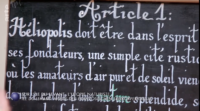 Article 1:
Héliopolis doit être dans l'esprit
ses fondateurs, une simple cité rustiq
où les amateurs d'air pur et de soleil vien
nature splendide, s